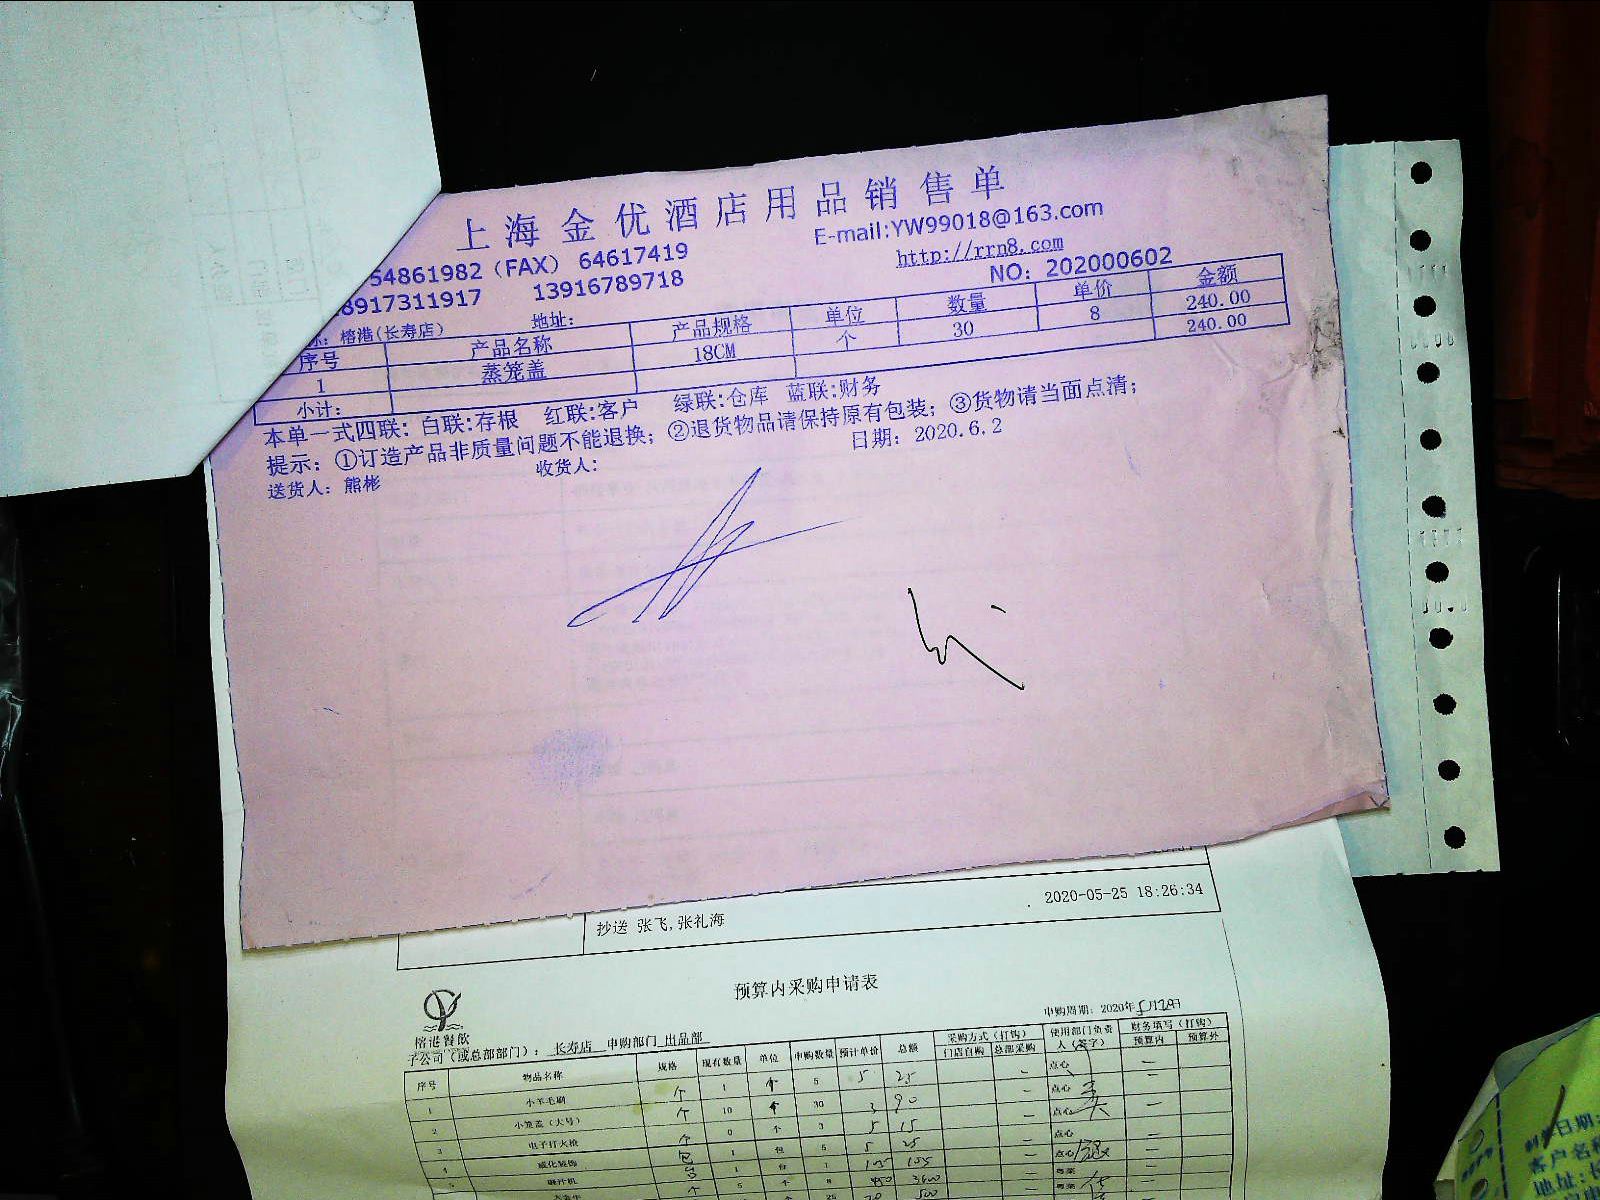 上海金优酒店用品销售单
54861982（FAX） 64617419
E-mail:YW99018@163.com
8917311917 13916789718
http://rrn8.com
NO：202000602
榕港(长寿店) 地址：
序号 产品名称 产品规格 单位 数量 单价 金额
1 蒸笼盖 18CM 个 30 8 240.00
小计： 240.00
本单一式四联：白联:存根 红联:客户 绿联:仓库 蓝联:财务
提示：①订造产品非质量问题不能退换；②退货物品请保持原有包装；③货物请当面点清；
送货人：熊彬 收货人： 日期：2020.6.2
2020-05-25 18:26:34
抄送 张飞,张礼海
预算内采购申请表
榕港餐飲
申购周期：2020年5月28日
子公司（或总部部门）：长寿店 申购部门 出品部
序号 物品名称 规格 现有数量 单位 申购数量 预计单价 总额 采购方式（打钩） 使用部门负责人（签字） 财务填写（打钩）
门店自购 总部采购 预算内 预算外
1 小羊毛刷 个 1 个 5 5 25 点心
2 小笼盖（大号） 个 10 个 30 3 90 点心
3 电子打火枪 个 0 个 3 5 15 点心
4 威化装饰 包 1 包 5 5 25 点心
5 榨汁机 台 1 台 1 105 105 点心
日期：
客户名称
地址：长